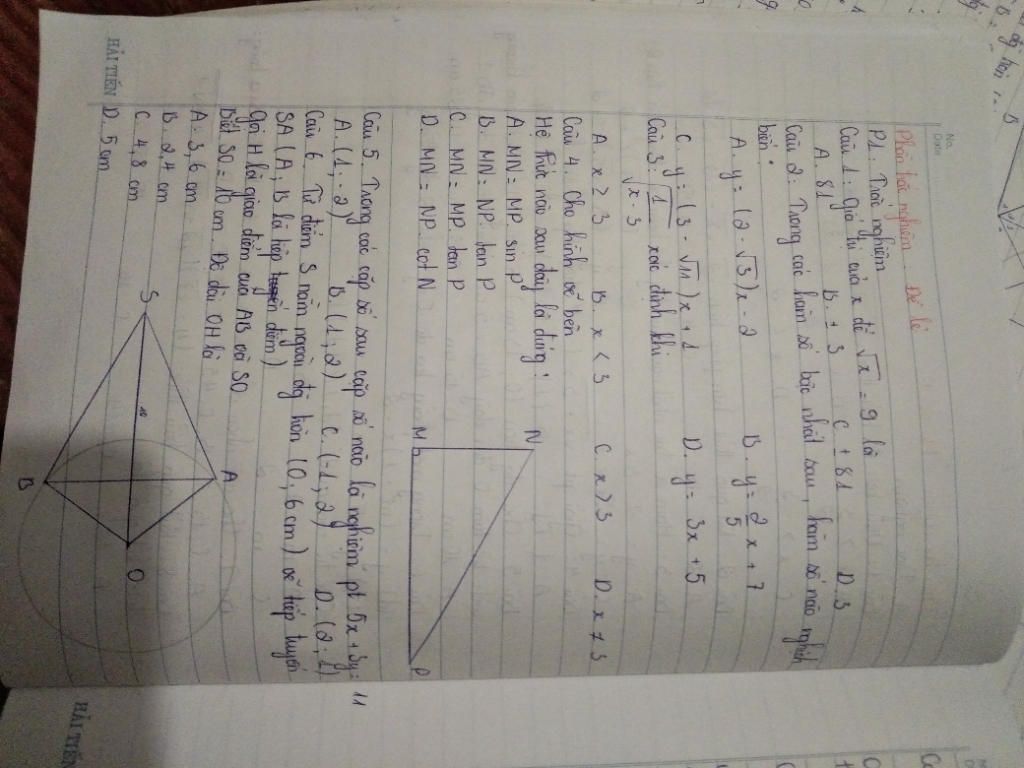 No.
Date
Phần trắc nghiệm. Đề lẻ
P1. Trắc nghiệm
Câu 1: Giá trị của x để √x = 9 là
A. 81 B. ± 3 C ± 81 D. 3
Câu 2: Trong các hàm số bậc nhất sau, hàm số nào nghịch
biến.
A. y = (2 - √3)x - 2 B. y = 2/5 x + 7
C. y = (3 - √11)x + 1 D. y = 3x + 5
Câu 3: √(1/(x - 3)) xác định khi
A. x ≥ 3 B. x < 3 C. x > 3 D. x ≠ 3
Câu 4. Cho hình vẽ bên
Hệ thức nào sau đây là đúng:
A. MN = MP. sin P
B. MN = NP. tan P
C. MN = MP. tan P
D. MN = NP. cot N
N
M
P
Câu 5. Trong các cặp số sau cặp số nào là nghiệm pt 5x + 3y = 11
A. (1, -2) B. (1; 2) C. (-1; 2) D. (2; 1)
Câu 6. Từ điểm S nằm ngoài đg tròn (O, 6 cm) vẽ tiếp tuyến
SA (A, B là tiếp điểm)
gọi H là giao điểm của AB và SO
Biết SO = 10 cm. Độ dài OH là
A. 3,6 cm
B. 2,4 cm
C. 4,8 cm
D. 5 cm
S
10
A
O
B
HẢI TIẾN
HẢI TIẾN